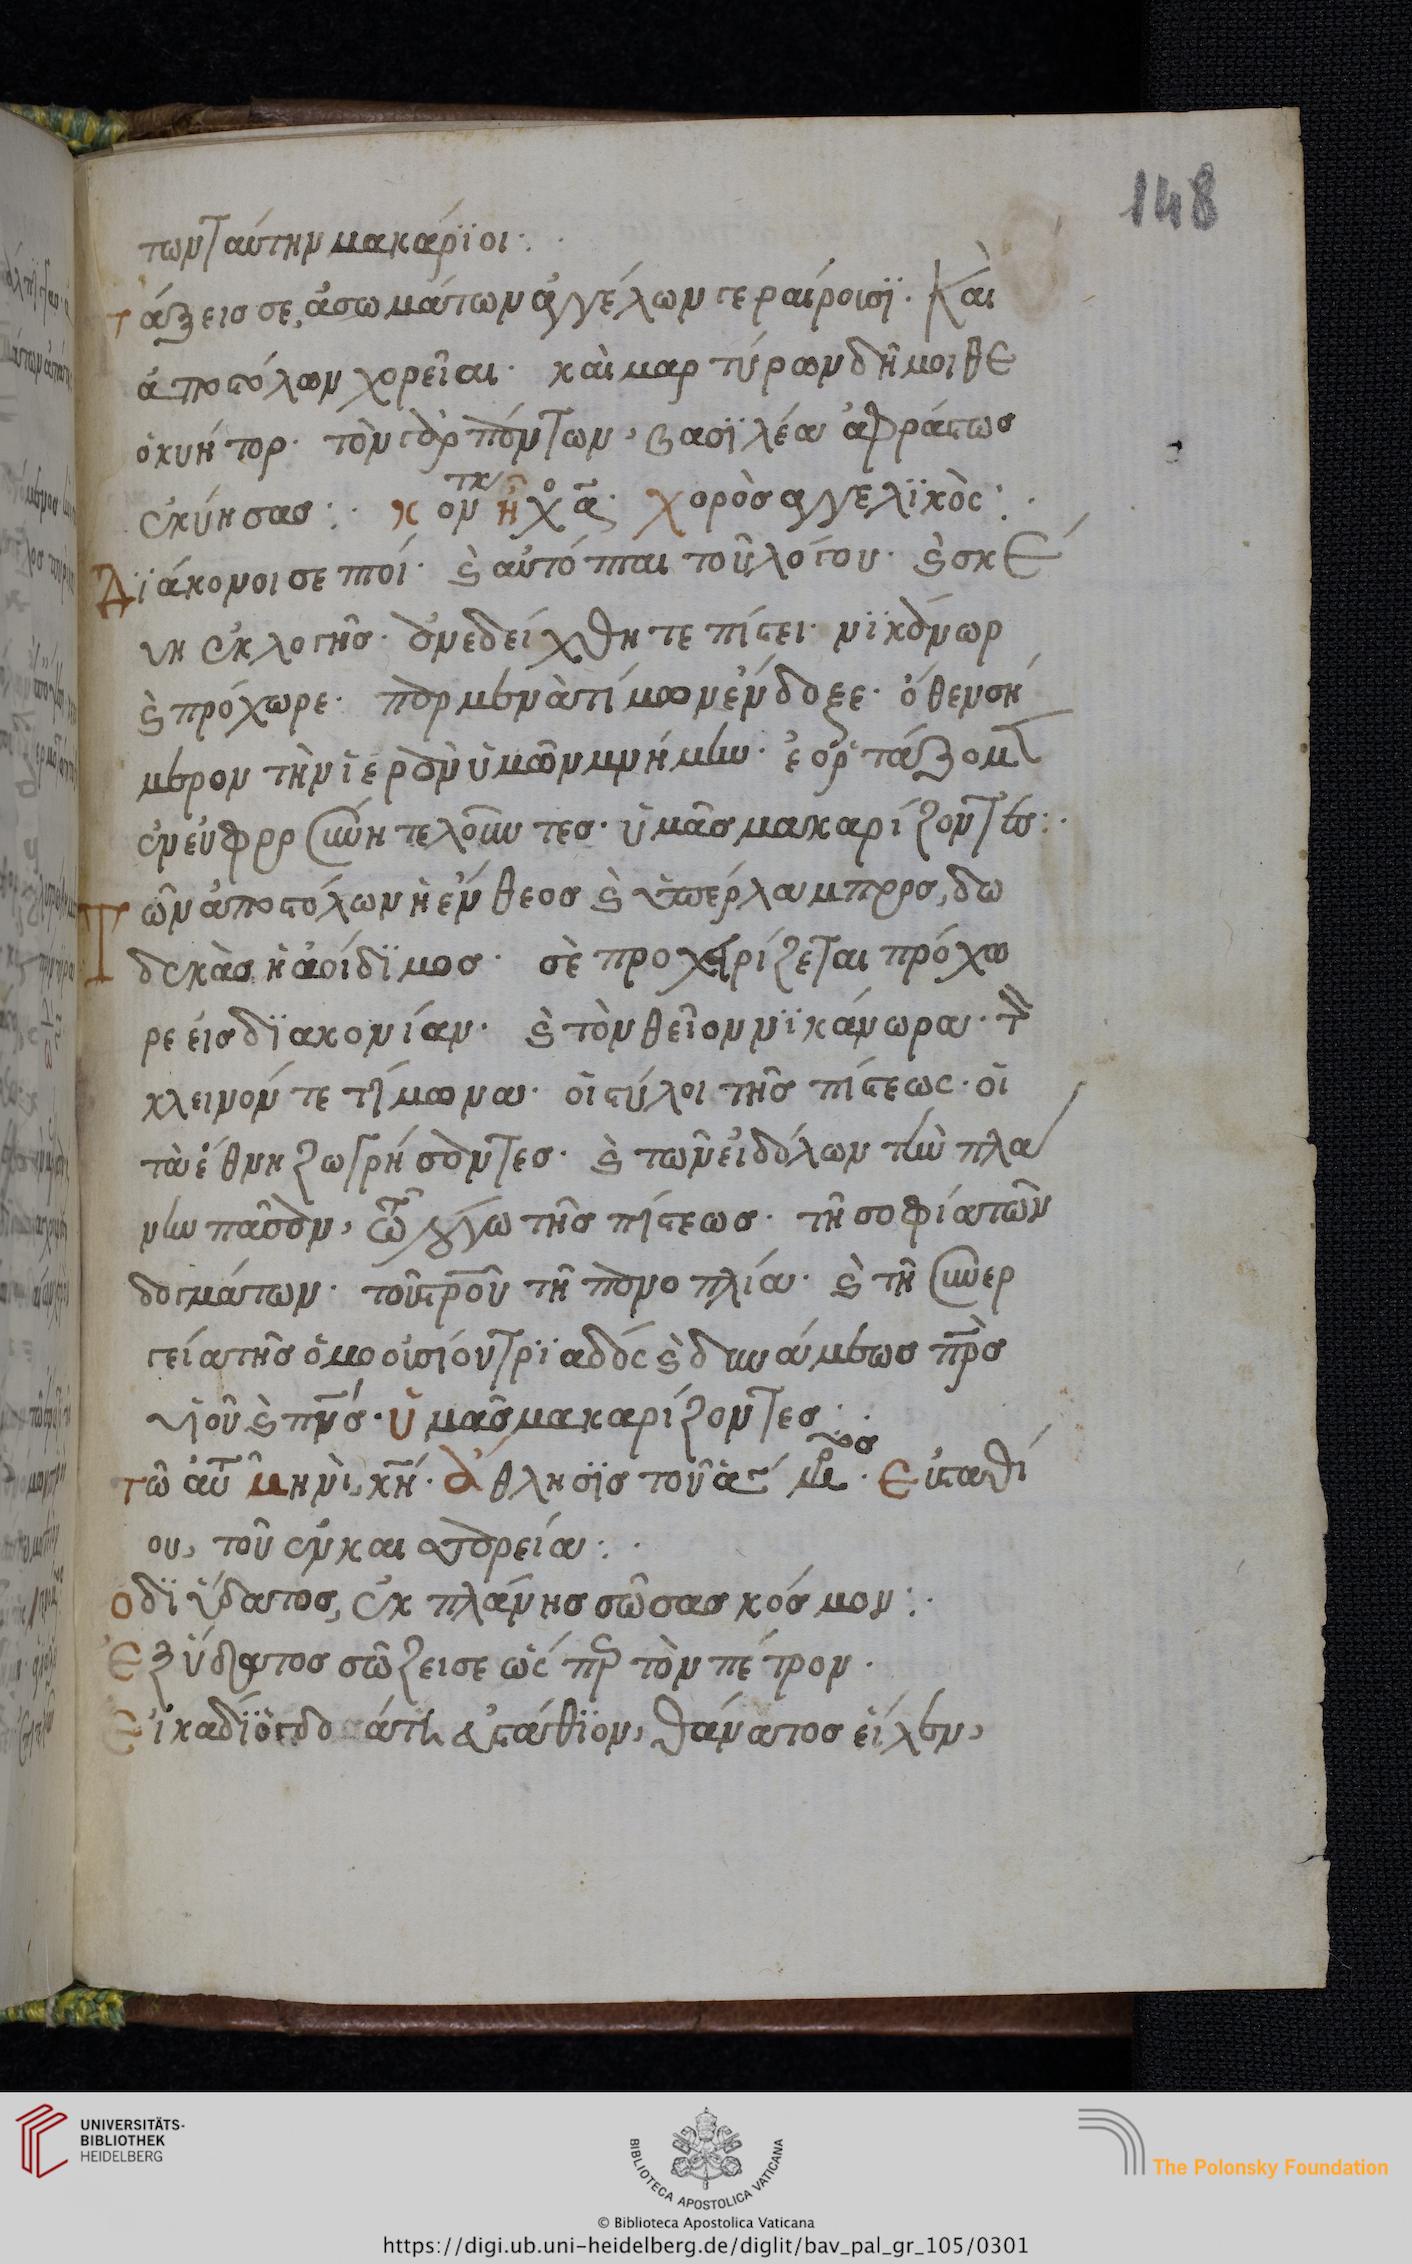 148
των ταύτην μακάριοι
τάξεισ σε, ἀσωμάτων ἀγγέλων γεραίροισϊ. Καὶ
ἀποστόλων χορεῖαι. καὶ μαρτύρων δῆμοι θε
ὀκυῆτορ. τὸν γὰρ πάντων, βασϊλέα ἀφράστως
ἐκύησας: κον ἦχο α χορὸσ ἀγγελϊκὸς:
Δϊάκονοι σεπτοί. καὶ αὐτόπται τοῦ λόγου. καὶ σκεύ
η ἐκλογῆσ. ἀνεδείχθητε πίστει. νϊκάνωρ
καὶ πρόχωρε. παρμενὰ τίμων ἔνδοξε. ὅθεν σή
μερον τὴν ἱερὰν ὑμῶν μνήμην. ἑορτάζομεν
ἐν εὐφροσύνη τελοῦντες. ὑμᾶσ μακαρίζοντες:
Τῶν ἀποστόλων ἡ ἔνθεοσ καὶ ὑπέρλαμπροσ, δω
δεκὰσ ἡ ἀοίδϊμοσ. σὲ προχειρίζεται πρόχω
ρε εἰσ δϊακονίαν. καὶ τὸν θεῖον νϊκάνωρα. τὸν
κλεινόν τε τίμωνα. οἱ στύλοι τῆσ πίστεως. οἱ
τὰ ἔθνη ζωγρήσαντεσ. καὶ τῶν εἰδώλων τὴν πλά
νην πᾶσαν, τῶ λόγω τῆσ πίστεωσ. τῆ σοφία τῶν
δογμάτων. τοῦ στροῦ τῆ πανοπλία. καὶ τῆ συνερ
γεία τῆσ ὁμοουσίου τρϊάδος καὶ δυνάμεωσ πρὸσ
υἱοῦ καὶ πνσ. ὑμᾶσ μακαρίζοντεσ
τῶ αὐτ μηνὶ, κη. ἄθλησϊσ τοῦ ἁγ μρ. Εὐσταθί
ου, τοῦ ἐν
Ὁ δϊ ὕδατοσ, ἐκ πλάνησ σώσασ κόσμον:
Ἐξ ὕδατοσ σώζει σε ὡς πρ τὸν πέτρον.
Εἰκάδϊ ὀγδοάτη εὐστάθϊον, θάνατοσ εἷλεν,
UNIVERSITÄTS-
BIBLIOTHEK
HEIDELBERG
BIBLIOTECA APOSTOLICA VATICANA
The Polonsky Foundation
© Biblioteca Apostolica Vaticana
https://digi.ub.uni-heidelberg.de/diglit/bav_pal_gr_105/0301